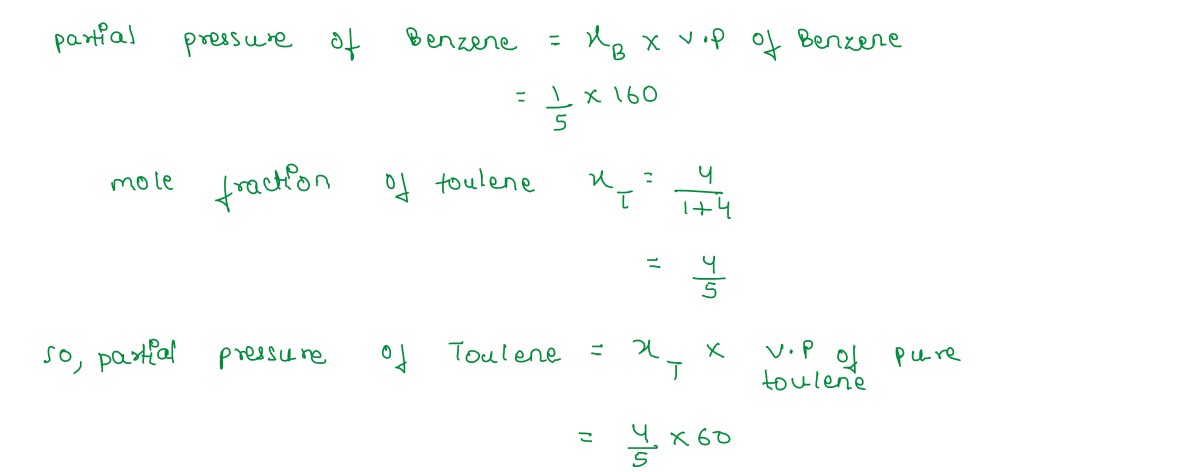 partial pressure of Benzene = x_B × v.p of Benzene
= 1/5 × 160
mole fraction of toulene x_T = 4/(1+4)
= 4/5
so, partial pressure of Toulene = x_T × v.p of pure toulene
= 4/5 × 60